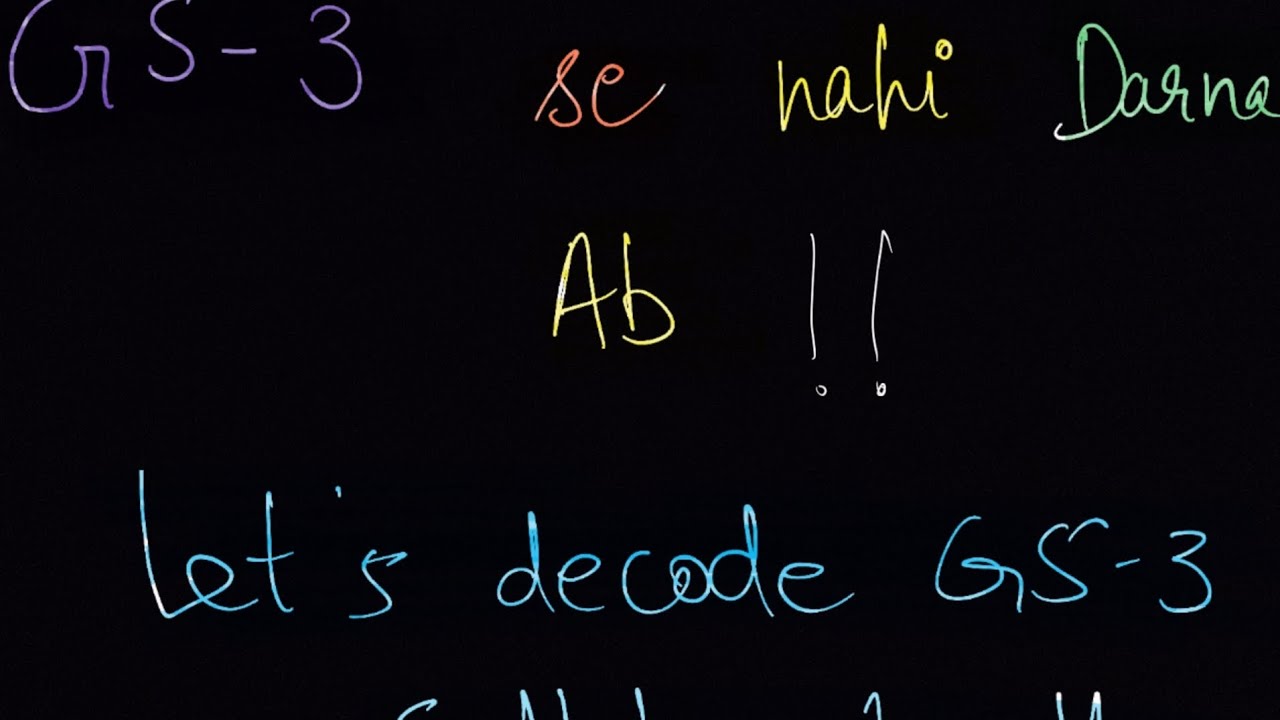 GS-3 se nahi Darna
Ab !!
Let's decode GS-3